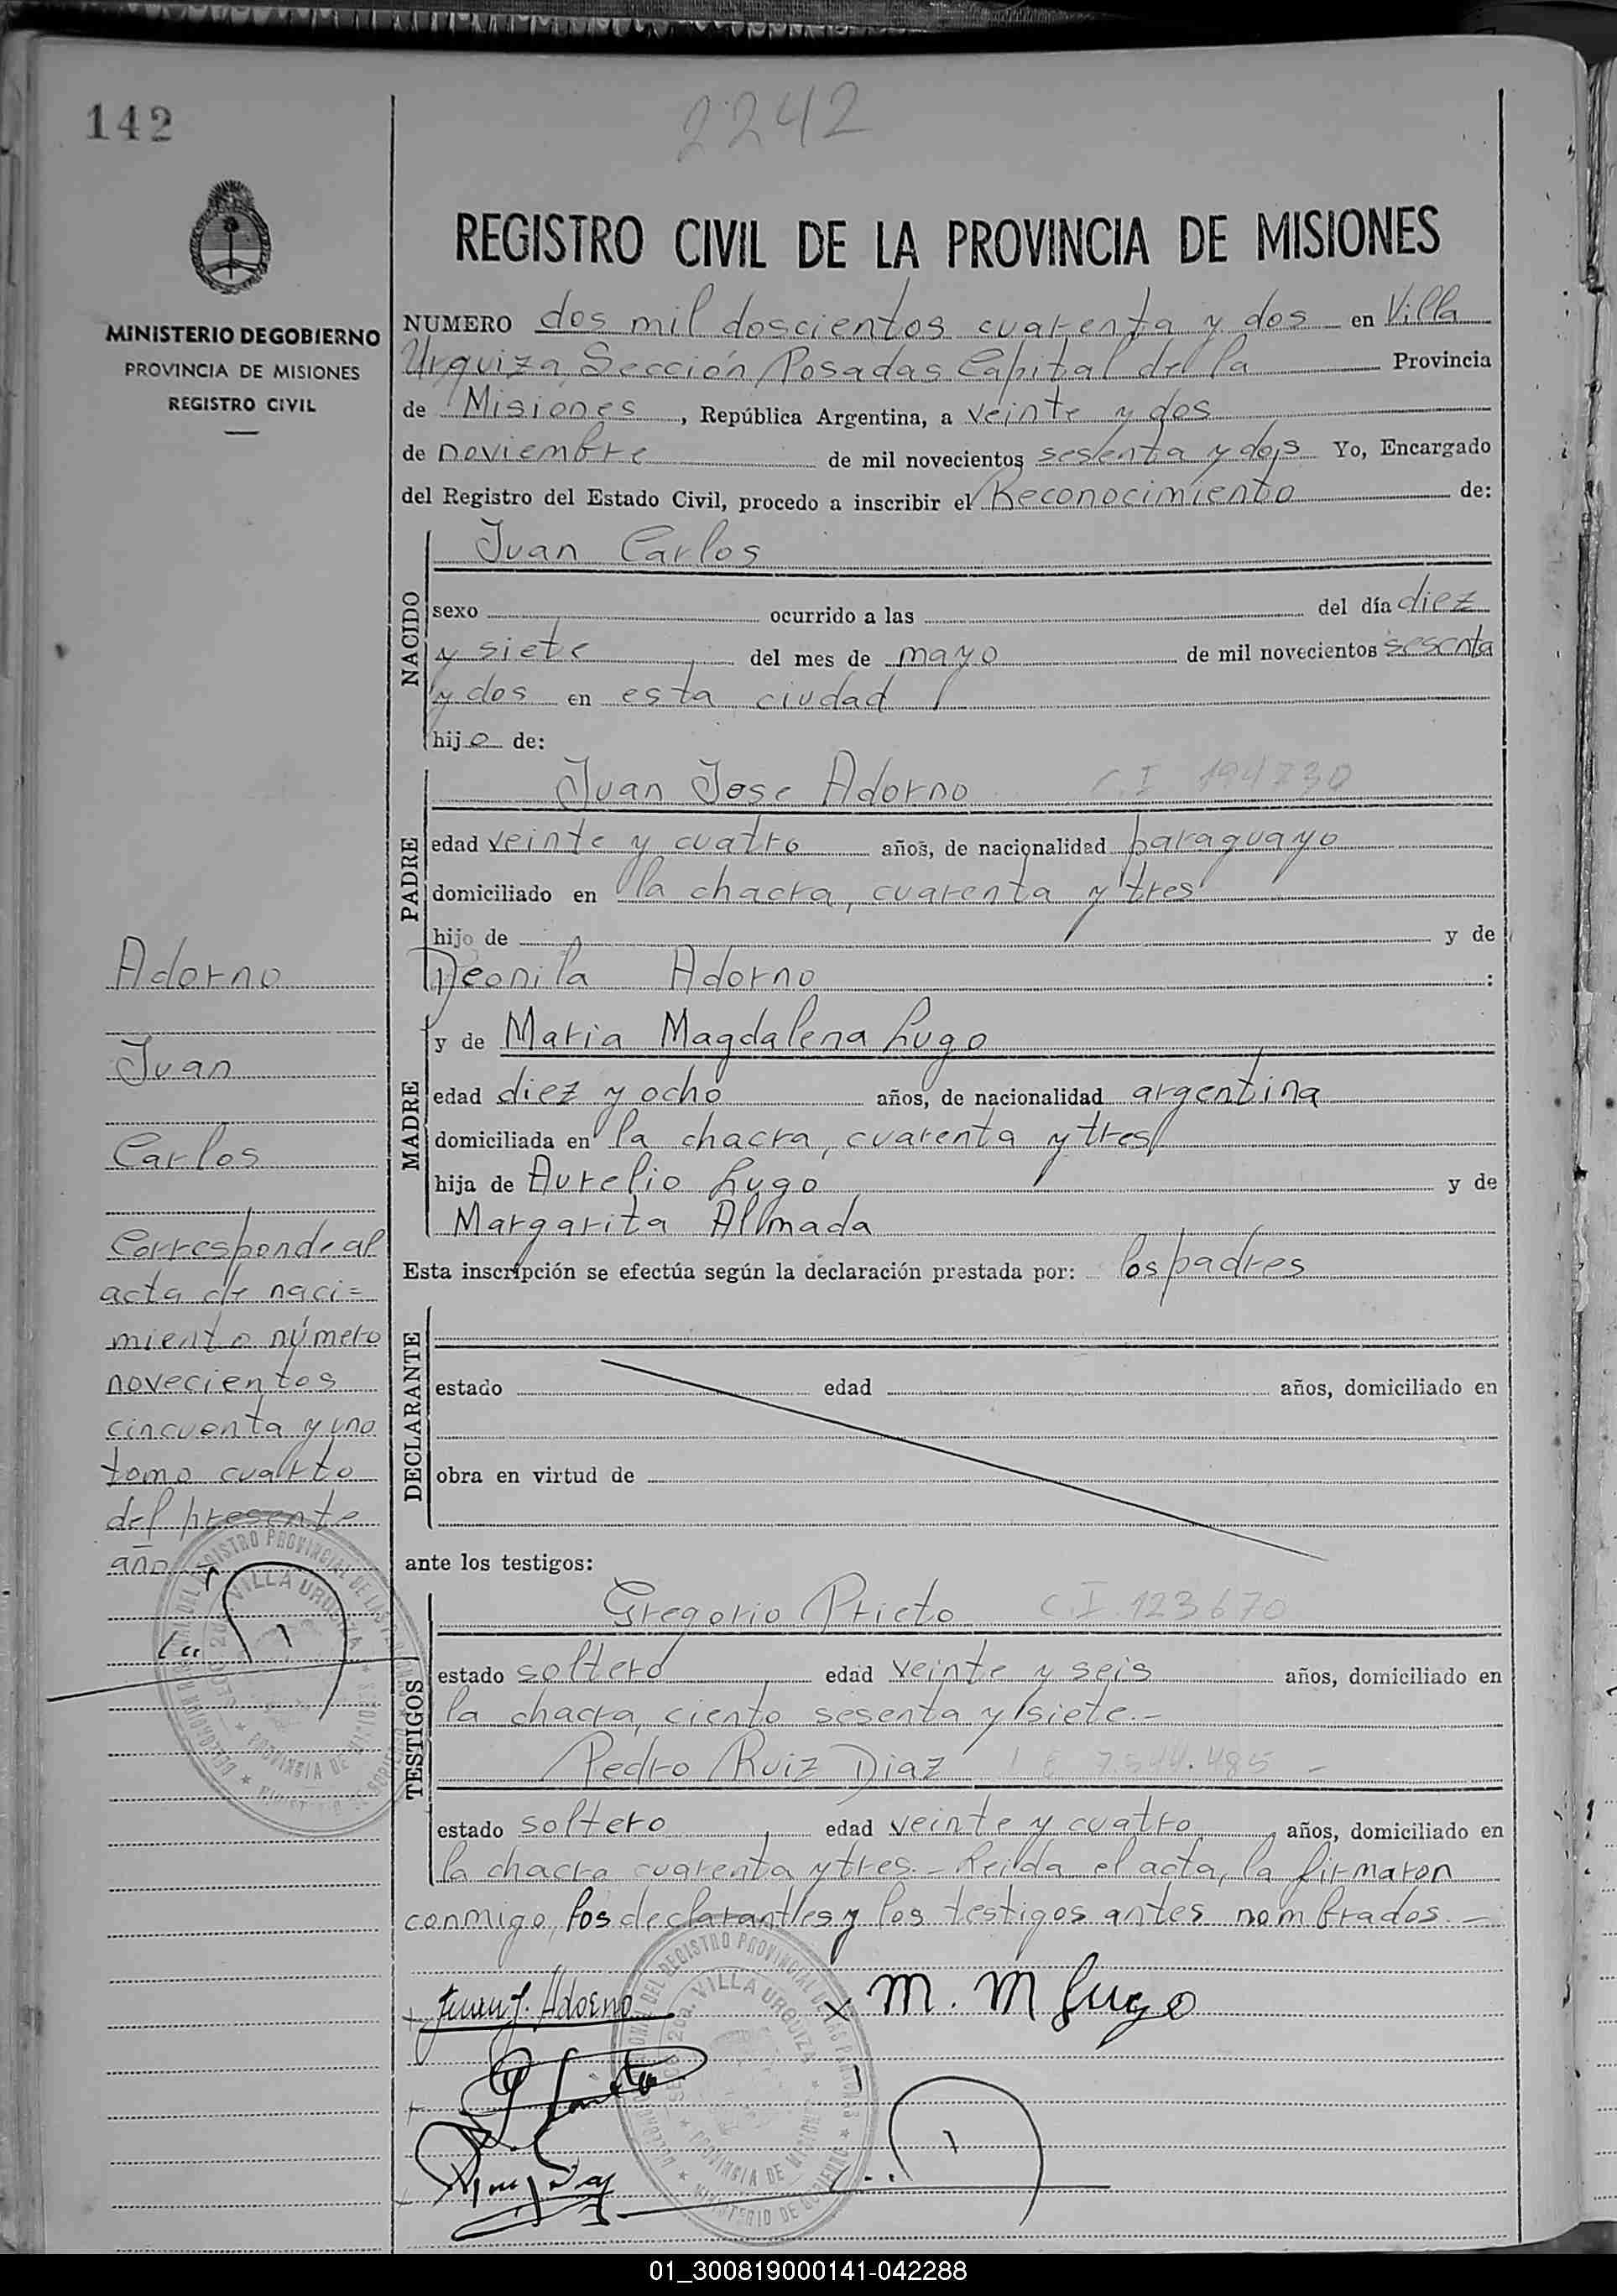 142
2242
MINISTERIO DE GOBIERNO
PROVINCIA DE MISIONES
REGISTRO CIVIL
REGISTRO CIVIL DE LA PROVINCIA DE MISIONES
NUMERO dos mil doscientos cuarenta y dos en Villa
Urquiza, Sección Posadas Capital de la Provincia
de Misiones, República Argentina, a veinte y dos
de noviembre de mil novecientos sesenta y dos Yo, Encargado
del Registro del Estado Civil, procedo a inscribir el Reconocimiento de:
NACIDO
Juan Carlos
sexo ocurrido a las del día diez
y siete del mes de mayo de mil novecientos sesenta
y dos en esta ciudad
hijo de:
PADRE
Juan Jose Adorno C.I 194730
edad veinte y cuatro años, de nacionalidad paraguayo
domiciliado en la chacra, cuarenta y tres
hijo de y de
Deonila Adorno :
MADRE
y de Maria Magdalena Lugo
edad diez y ocho años, de nacionalidad argentina
domiciliada en la chacra, cuarenta y tres
hija de Aurelio Lugo y de
Margarita Almada
Esta inscripción se efectúa según la declaración prestada por: los padres
DECLARANTE
estado edad años, domiciliado en
obra en virtud de
ante los testigos:
TESTIGOS
Gregorio Prieto C.I. 123670
estado soltero edad veinte y seis años, domiciliado en
la chacra, ciento sesenta y siete.-
Pedro Ruiz Diaz 7.544.485 -
estado soltero edad veinte y cuatro, años, domiciliado en
la chacra cuarenta y tres.- Leida el acta, la firmaron
conmigo, los declarantes y los testigos antes nombrados.-
Adorno
Juan
Carlos
Corresponde al
acta de naci=
miento número
novecientos
cincuenta y uno
tomo cuarto
del presente
año
VILLA URQUIZA
PROVINCIA DE MISIONES
Juan J. Adorno
x M. M Lugo
DEL REGISTRO PROVINCIAL DE LAS PERSONAS
SECC. 20a. VILLA URQUIZA
PROVINCIA DE MISIONES
MINISTERIO DE GOBIERNO
01_300819000141-042288